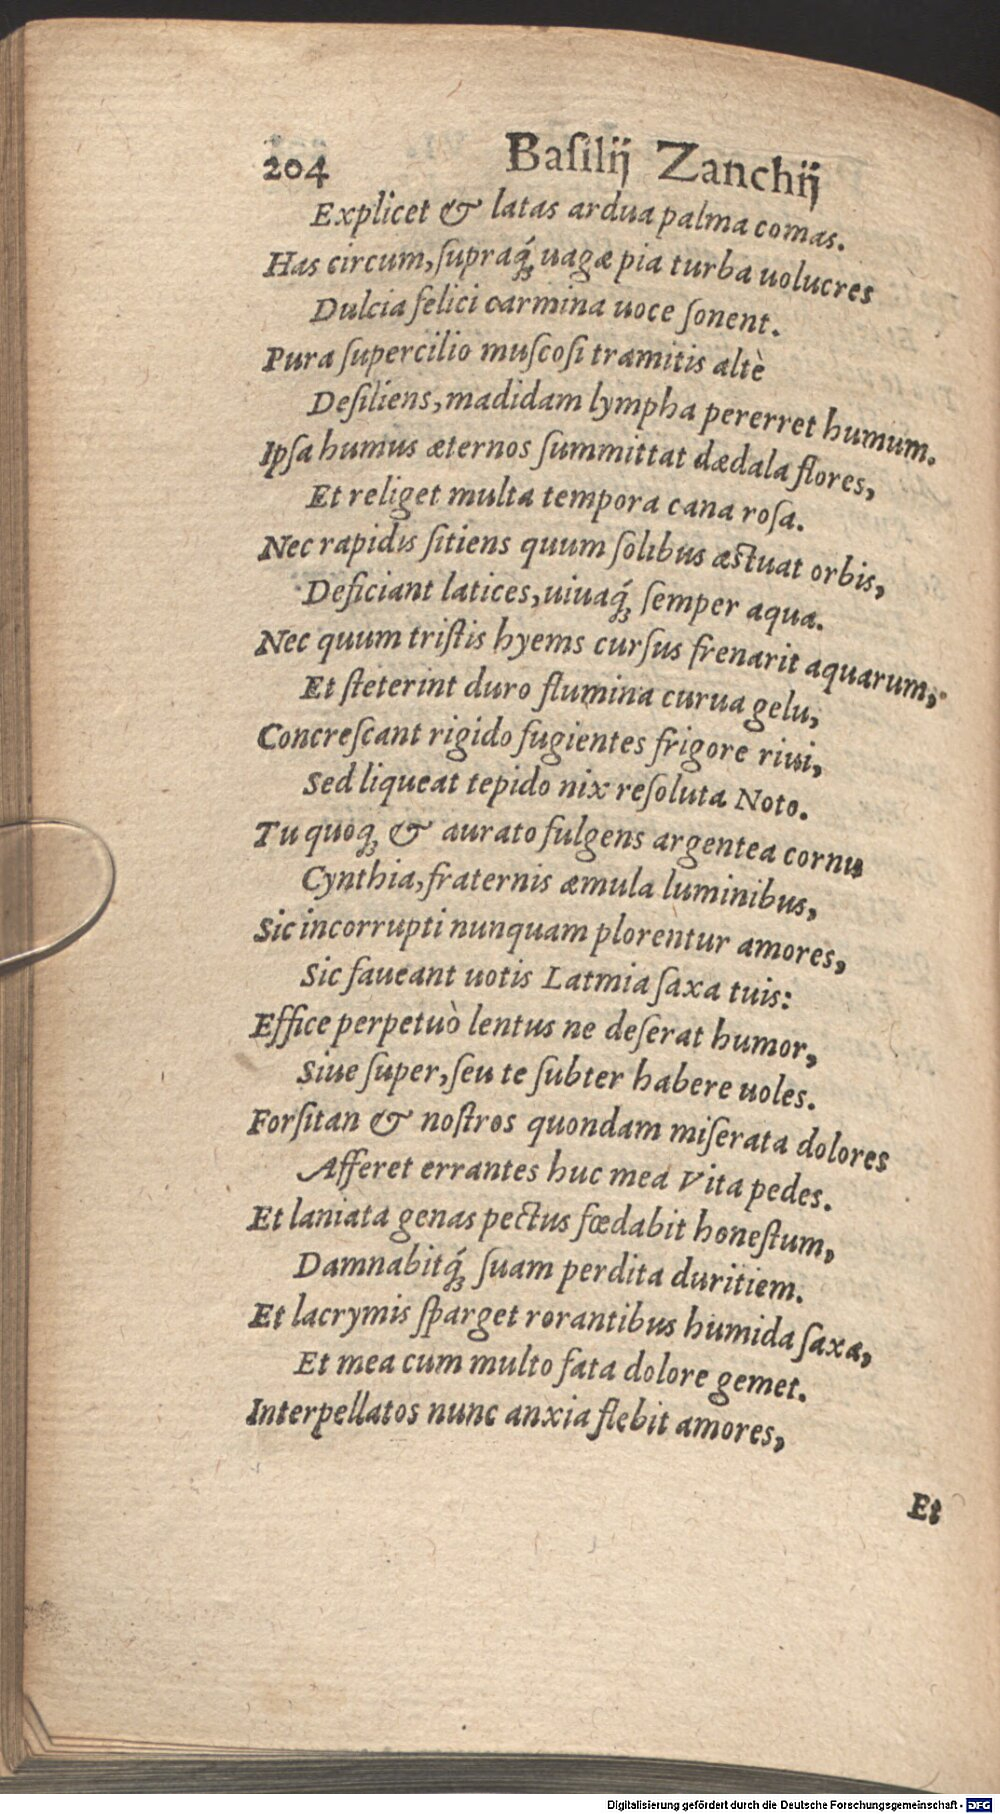 204 Baſilij Zanchij
Explicet & latas ardua palma comas.
Has circum, ſupraq́; uagæ pia turba uolucres
Dulcia felici carmina uoce ſonent.
Pura ſupercilio muſcoſi tramitis altè
Deſiliens, madidam lympha pererret humum.
Ipſa humus æternos ſummittat dædala flores,
Et religet multa tempora cana roſa.
Nec rapidis ſitiens quum ſolibus æſtuat orbis,
Deficiant latices, uiuaq́; ſemper aqua.
Nec quum triſtis hyems curſus frenarit aquarum,
Et ſteterint duro flumina curua gelu,
Concreſcant rigido fugientes frigore riui,
Sed liqueat tepido nix reſoluta Noto.
Tu quoq; & aurato fulgens argentea cornu
Cynthia, fraternis æmula luminibus,
Sic incorrupti nunquam plorentur amores,
Sic faueant uotis Latmia ſaxa tuis:
Effice perpetuò lentus ne deſerat humor,
Siue ſuper, ſeu te ſubter habere uoles.
Forſitan & noſtros quondam miſerata dolores
Afferet errantes huc mea Vita pedes.
Et laniata genas pectus fœdabit honeſtum,
Damnabitq́; ſuam perdita duritiem.
Et lacrymis ſparget rorantibus humida ſaxa,
Et mea cum multo fata dolore gemet.
Interpellatos nunc anxia flebit amores,
Et
Digitalisierung gefördert durch die Deutsche Forschungsgemeinschaft - DFG